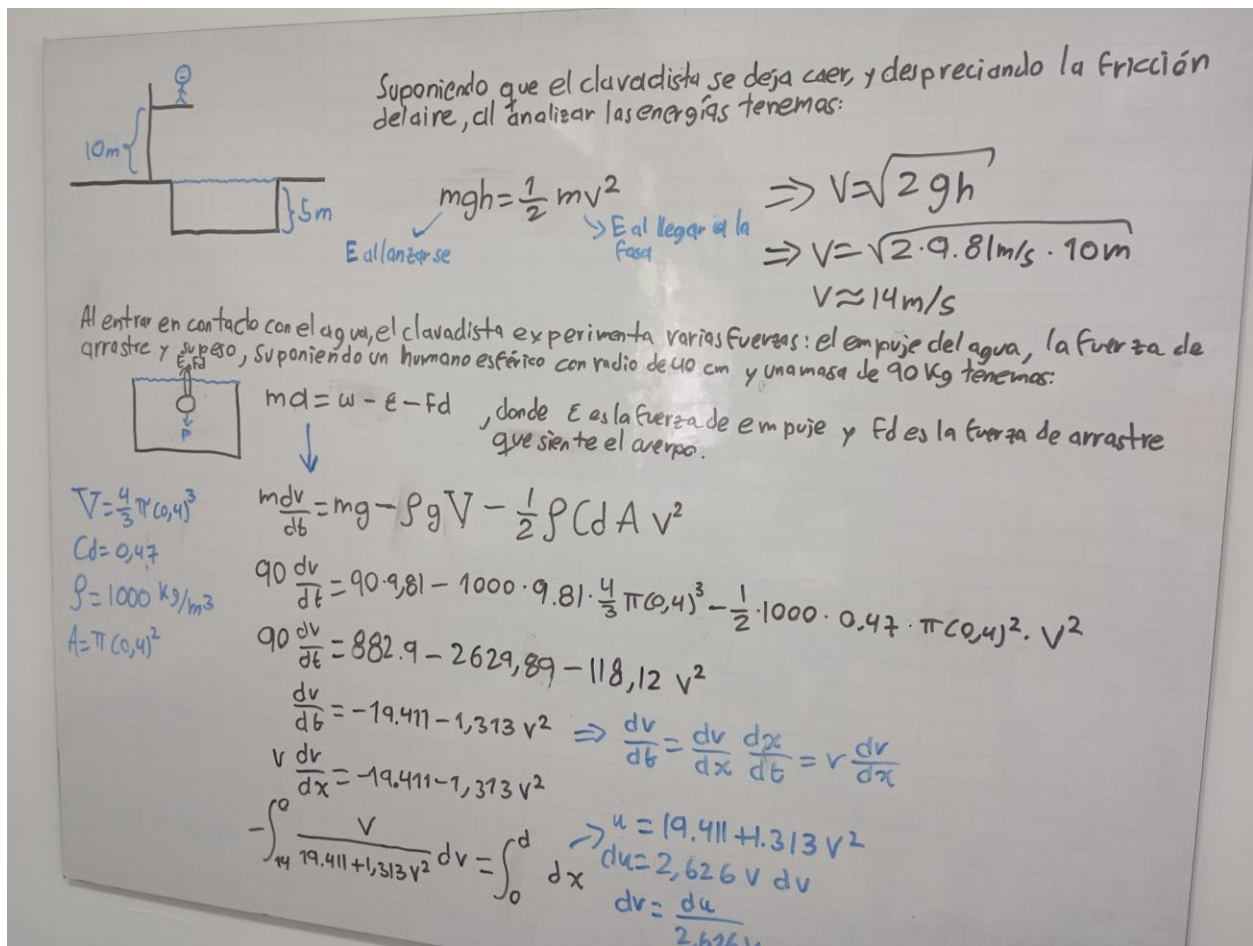 Suponiendo que el clavadista se deja caer, y despreciando la fricción
del aire, al analizar las energías tenemos:
10m
5m
mgh = 1/2 mv²
E al lanzarse
E al llegar a la
fosa
⇒ V = √2gh
⇒ V = √2·9.81m/s · 10m
V ≈ 14m/s
Al entrar en contacto con el agua, el clavadista experimenta varias fuerzas: el empuje del agua, la fuerza de
arrastre y su peso, suponiendo un humano esférico con radio de 40 cm y una masa de 90 Kg tenemos:
E Fd
P
ma = w - E - Fd , donde E es la fuerza de empuje y Fd es la fuerza de arrastre
que siente el cuerpo.
V = 4/3 π(0,4)³
Cd = 0,47
ρ = 1000 kg/m3
A = π(0,4)²
m dv/dt = mg - ρgV - 1/2 ρ Cd A v²
90 dv/dt = 90·9,81 - 1000·9.81·4/3 π(0,4)³ - 1/2·1000·0,47·π(0,4)²·v²
90 dv/dt = 882.9 - 2629,89 - 118,12 v²
dv/dt = -19.411 - 1,313 v² ⇒ dv/dt = dv/dx dx/dt = v dv/dx
v dv/dx = -19.411 - 1,313 v²
-∫₁₄⁰ v/(19.411 + 1,313 v²) dv = ∫₀ᵈ dx
→ u = 19.411 + 1.313 v²
du = 2,626 v dv
dv = du/2.626v